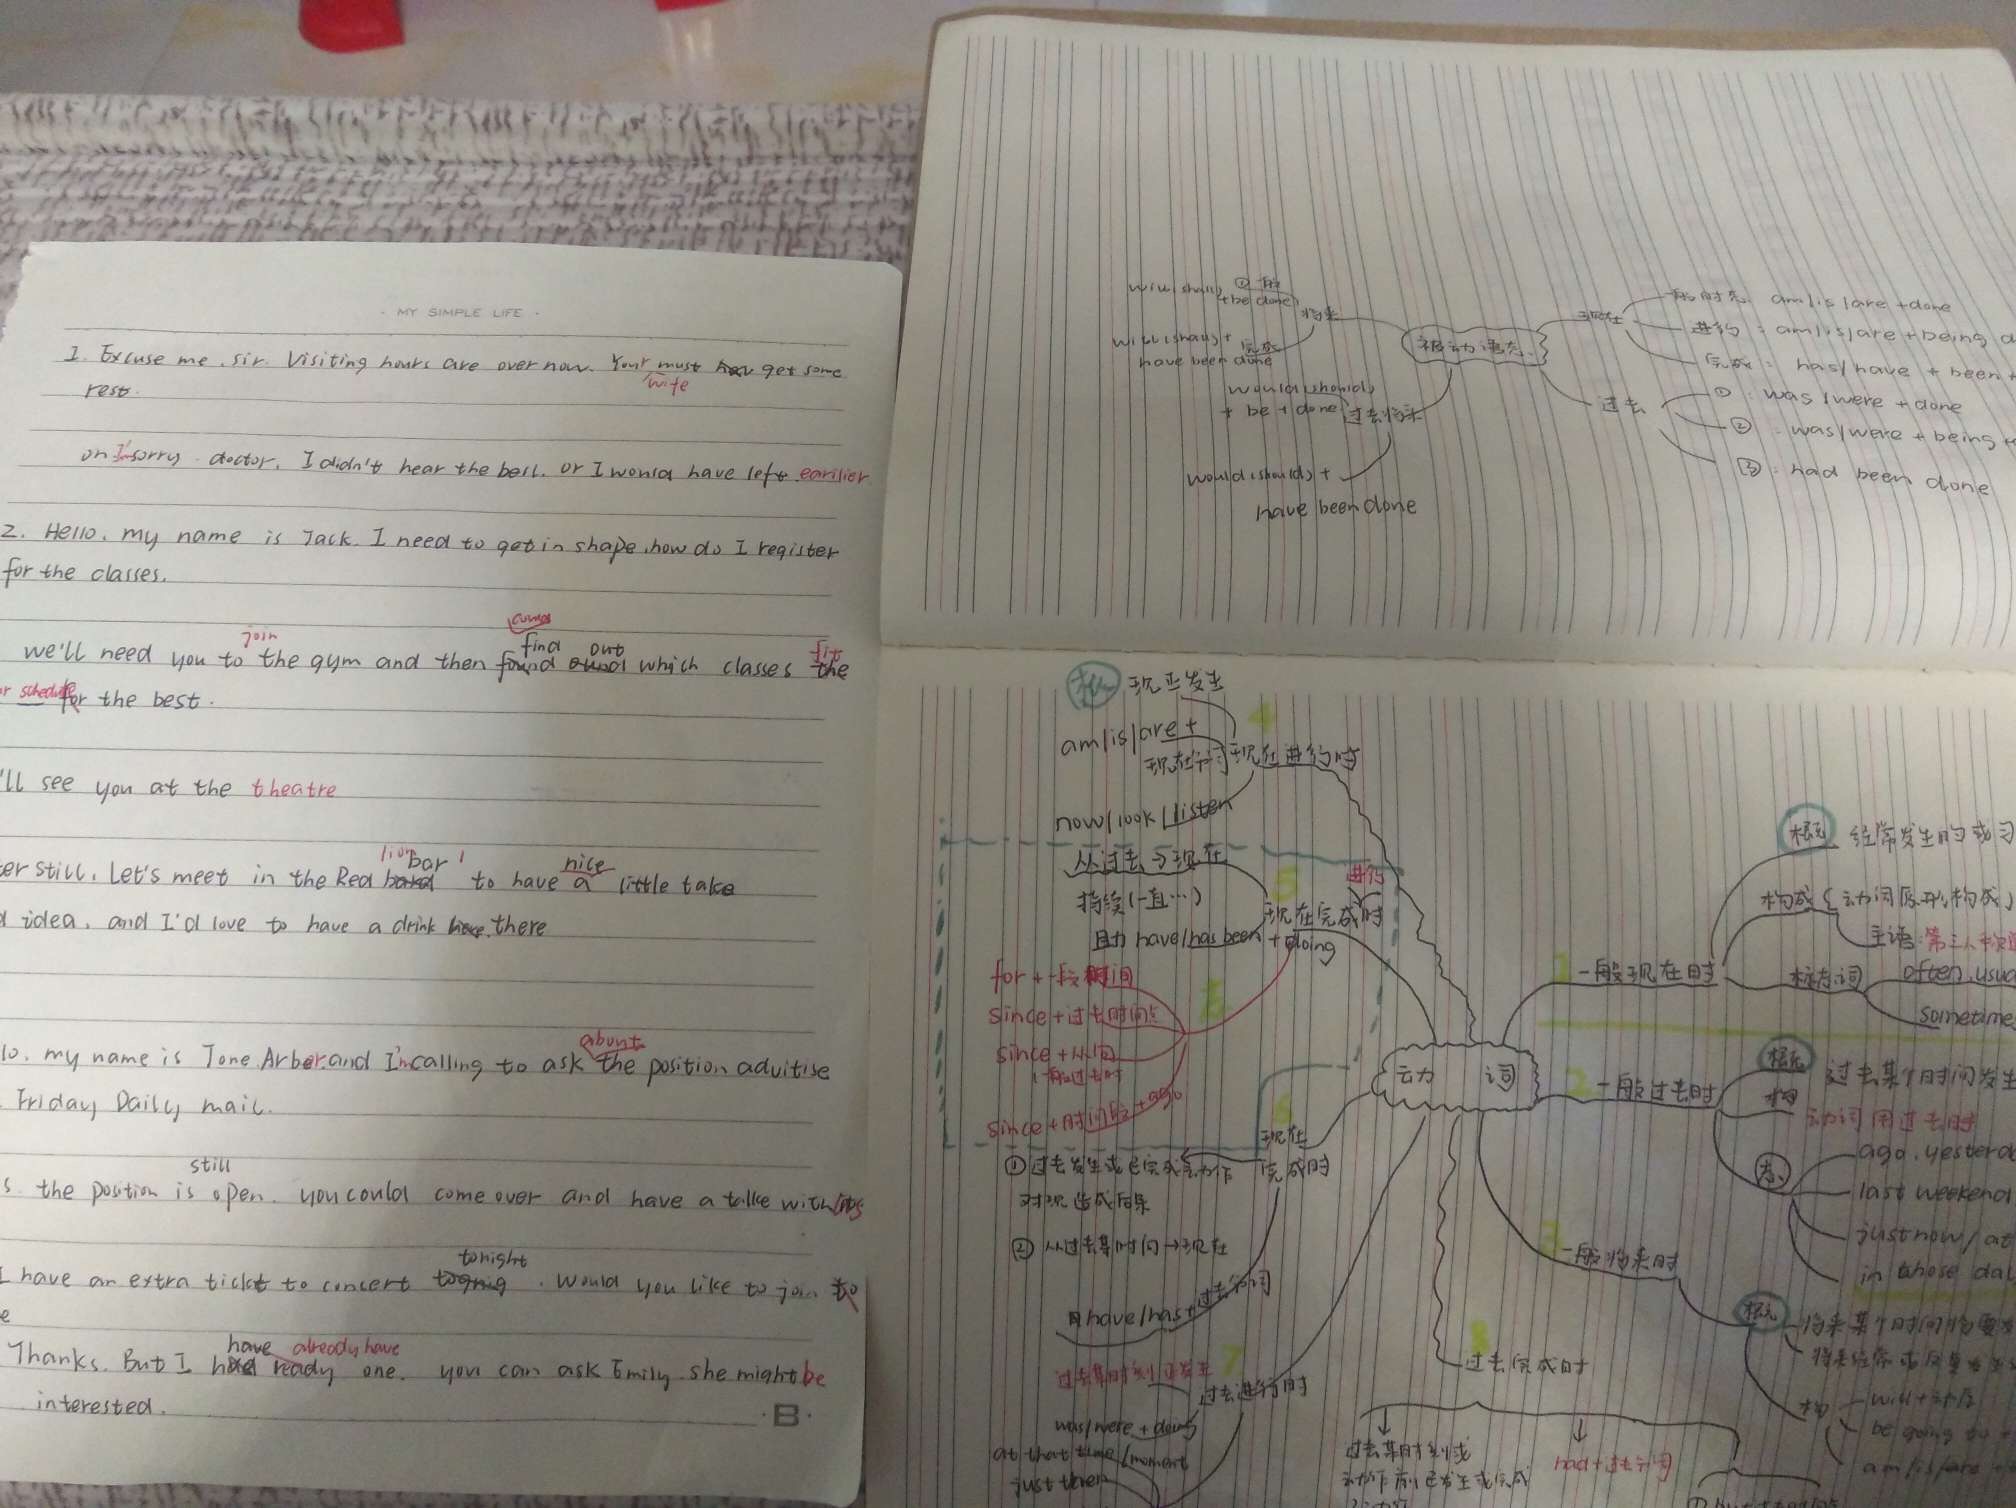 · MY SIMPLE LIFE ·
1. Excuse me, sir. Visiting hours are over now. Your must get some
wife
rest.
I'm sorry doctor. I didn't hear the bell. or I would have left earilier
2. Hello, my name is Jack. I need to get in shape, how do I register
for the classes.
join
find out fit
we'll need you to the gym and then found which classes the
schedule for the best.
'll see you at the theatre
lion bar nice
er still, Let's meet in the Red to have a little take
idea, and I'd love to have a drink there
about
lo, my name is Tone Arber and I'm calling to ask the position aduitise
Friday Daily mail.
still
s. the position is open. you could come over and have a talke with
tonight
I have an extra ticket to concert . Would you like to join to
e
have already have
Thanks. But I had ready one. you can ask Emily. she might be
interested.
·B·
will(shall) ①一般
+be done
将来
will(shall)+ 完成
have been done
would(should)
+ be + done 过去将来
would(should) +
have been done
被动语态
现在
一般时态: am/is/are +done
进行: am/is/are + being d
完成: has/have + been +
过去
①: was/were + done
②: was/were + being +
③: had been done
概 现正发生
am/is/are +
现在分词 现在进行时
now/look/listen
从过去→现在
持续(一直…)
进行
现在完成时
助 have/has been + doing
for + 一段时间
since + 过去时间点
since + 从句
(一般过去时
since + 时间段 + ago
动词
现在
完成时
①过去发生或已完成动作
对现造成后果
②从过去某时间→现在
助have/has + 过去分词
过去某时刻正发生
过去进行时
was/were + doing
at that time/moment
just then
1 一般现在时
概况 经常发生的或习
构成(动词原形构成)
主语:第三人称
标志词 often, usua
sometime
2 一般过去时
概况 过去某个时间发生
构 动词用过去时
标 ago, yesterda
last weekend
just now/at
in those day
3 一般将来时
概况 将来某个时间将要发
构 will + 动原
be going to +
am/is/are +
8 过去完成时
过去某时刻或
动作前已发生或完成
had + 过去分词